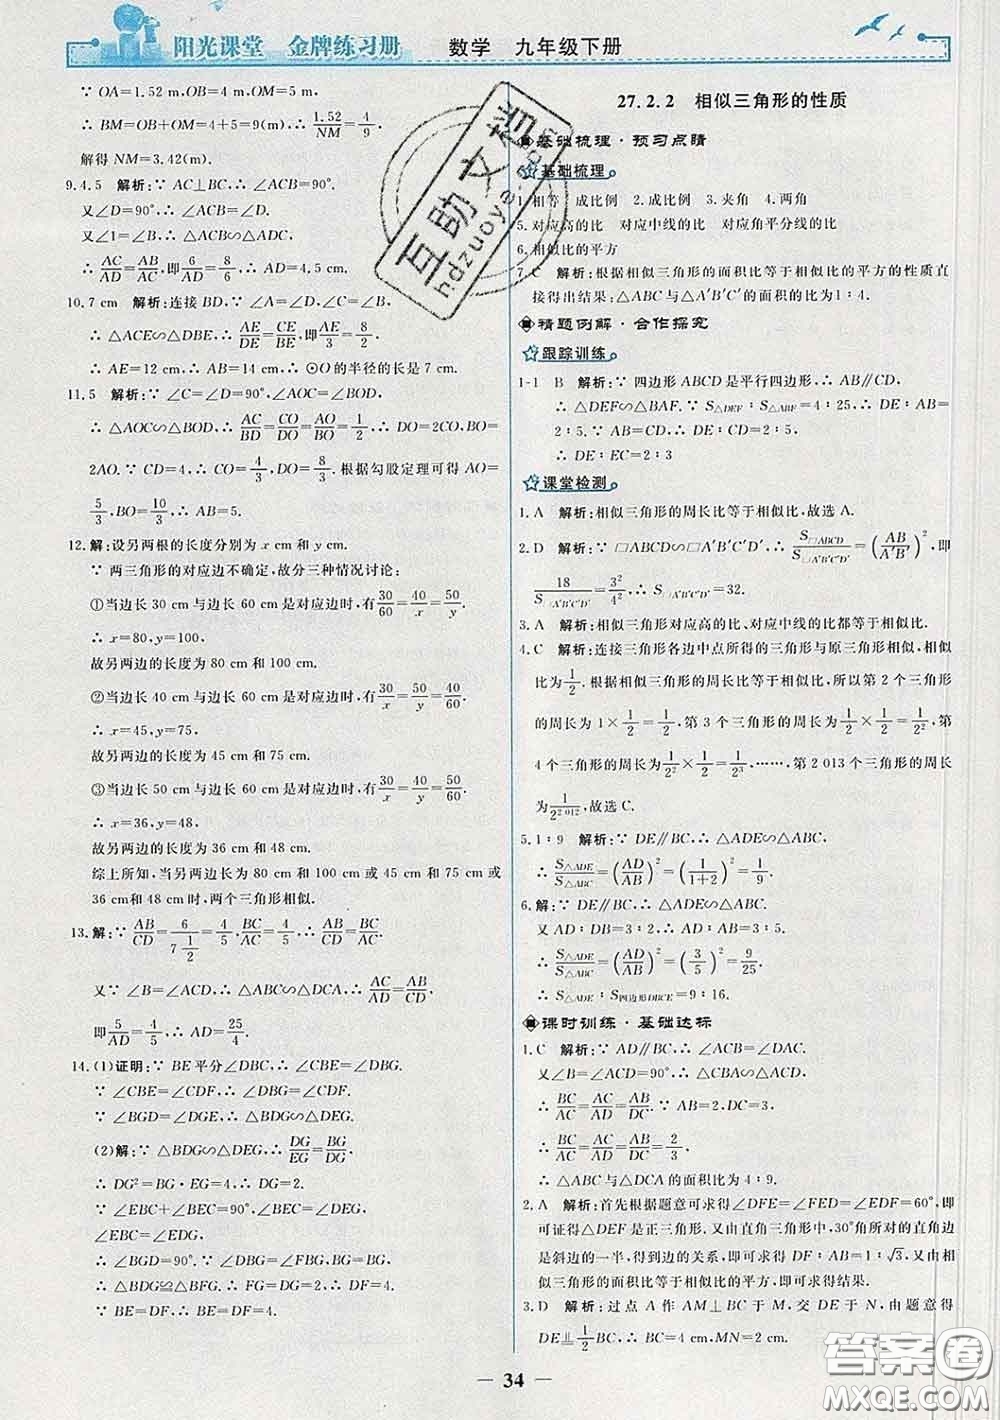 阳光课堂 金牌练习册 数学 九年级下册
∵ OA=1.52 m,OB=4 m,
∴ BM=OB+OM=4+5=9(m),∴ 1.52/NM=4/9,
解得 NM=3.42(m).
9.4.5 解析:∵ AC⊥BC,∴ ∠ACB=90°.
又∠D=90°,∴ ∠ACB=∠D.
又∠1=∠B,∴ △ACB∽△ADC,
∴ AC/AD=AB/AC,即6/AD=8/6,∴ AD=4.5 cm.
10.7 cm 解析:连接 BD,∵ ∠A=∠D,∠C=∠B,
∴ △ACE∽△DBE,∴ AE/DE=CE/BE,即AE/3=8/2,
∴ AE=12 cm,∴ AB=14 cm,∴ ⊙O 的半径的长是 7 cm.
11.5 解析:∵ ∠C=∠D=90°,∠AOC=∠BOD,
∴ △AOC∽△BOD,∴ AC/BD=CO/DO=AO/BO=1/2,∴ DO=2CO,BO=
2AO.∵ CD=4,∴ CO=4/3,DO=8/3.根据勾股定理可得 AO=
5/3,BO=10/3,∴ AB=5.
12.解:设另两根的长度分别为 x cm 和 y cm.
∵ 两三角形的对应边不确定,故分三种情况讨论:
①当边长 30 cm 与边长 60 cm 是对应边时,有30/60=40/x=50/y,
∴ x=80,y=100,
故另两边的长度为 80 cm 和 100 cm.
②当边长 40 cm 与边长 60 cm 是对应边时,有30/x=50/y=40/60,
∴ x=45,y=75,
故另两边的长度为 45 cm 和 75 cm.
③当边长 50 cm 与边长 60 cm 是对应边时,有30/x=40/y=50/60,
∴ x=36,y=48,
故另两边的长度为 36 cm 和 48 cm.
综上所知,当另两边的长度为 80 cm 和 100 cm 或 45 cm 和 75 cm 或
36 cm和 48 cm 时,两个三角形相似.
13.解:∵ AB/CD=6/7 1/2=4/5,BC/AC=4/5,∴ AB/CD=BC/AC.
又∵ ∠B=∠ACD,∴ △ABC∽△DCA,∴ AC/AD=AB/CD,
即5/AD=4/5,∴ AD=25/4.
14.(1)证明:∵ BE 平分∠DBC,∴ ∠CBE=∠DBE.
∵ ∠CBE=∠CDF,∴ ∠DBG=∠CDF.
∵ ∠BGD=∠DGE,∴ △BDG∽△DEG.
(2)解:∵ △BDG∽△DEG,∴ DG/EG=BG/DG,
∴ DG²=BG·EG=4,∴ DG=2.
∵ ∠EBC+∠BEC=90°,∠BEC=∠DEG,∠EBC
=∠EDG,
∴ ∠BGD=90°.∵ ∠DBG=∠FBG,BG=BG,
∴ △BDG≌△BFG.∴ FG=DG=2,∴ DF=4.
∵ BE=DF,∴ BE=DF=4.
27.2.2 相似三角形的性质
基础梳理·预习点睛
基础梳理
1.相等 成比例 2.成比例 3.夹角 4.两角
5.对应高的比 对应中线的比 对应角平分线的比
6.相似比的平方
7.C 解析:根据相似三角形的面积比等于相似比的平方的性质直
接得出结果:△ABC与△A′B′C′的面积的比为1∶4.
精题例解·合作探究
跟踪训练
1-1 B 解析:∵ 四边形 ABCD 是平行四边形,∴ AB∥CD,
∴ △DEF∽△BAF.∵ S△DEF∶S△ABF=4∶25,∴ DE∶AB=
2∶5.∵ AB=CD,∴ DE∶CD=2∶5,
∴ DE∶EC=2∶3
课堂检测
1.A 解析:相似三角形的周长比等于相似比,故选 A.
2.D 解析:∵ □ABCD∽□A′B′C′D′,∴ S□ABCD/S□A′B′C′D′=(AB/A′B′)²,即
18/S□A′B′C′D′=3²/4²,∴ S□A′B′C′D′=32.
3.A 解析:相似三角形对应高的比、对应中线的比都等于相似比.
4.C 解析:连接三角形各边中点所得的三角形与原三角形相似,相似
比为1/2.根据相似三角形的周长比等于相似比,所以第 2 个三角形
的周长为 1×1/2=1/2,第 3 个三角形的周长为1/2×1/2=1/2²,第
4 个三角形的周长为1/2²×1/2=1/2³,……,第 2 013 个三角形的周长
为1/2²⁰¹²,故选 C.
5.1∶9 解析:∵ DE∥BC,∴ △ADE∽△ABC,
∴ S△ADE/S△ABC=(AD/AB)²=(1/1+2)²=1/9.
6.解:∵ DE∥BC,∴ △ADE∽△ABC.
又 AD∶DB=3∶2,∴ AD∶AB=3∶5.
∴ S△ADE/S△ABC=(AD/AB)²=(3/5)²=9/25,
∴ S△ADE∶S四边形DBCE=9∶16.
课时训练·基础达标
1.C 解析:∵ AD∥BC,∴ ∠ACB=∠DAC.
又∠B=∠ACD=90°,∴ △CBA∽△ACD,
∴ BC/AC=AC/AD=AB/DC.∵ AB=2,DC=3,
∴ BC/AC=AC/AD=AB/DC=2/3,
∴ △ABC 与△DCA 的面积比为 4∶9.
2.A 解析:首先根据题意可求得∠DFE=∠FED=∠EDF=60°,即
可证得△DEF 是正三角形.又由直角三角形中,30°角所对的直角边
是斜边的一半,得到边的关系,即可求得 DF∶AB=1∶√3,又由相
似三角形的面积比等于相似比的平方,即可求得结果.
3.D 解析:过点 A 作 AM⊥BC 于 M,交 DE 于 N,由题意得
DE⊥∥1/2BC,∴ BC=4 cm,MN=2 cm.
34
互助文档
hdzuoye.com
答案圈
MXQE.COM